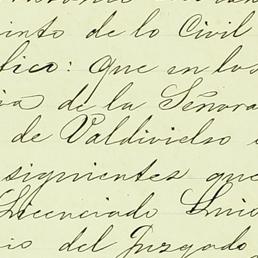 into de lo Civil
fico: Que en los
de la Señora
de Valdivielso
siguientes que
Licenciado Luis
io del Juzgado